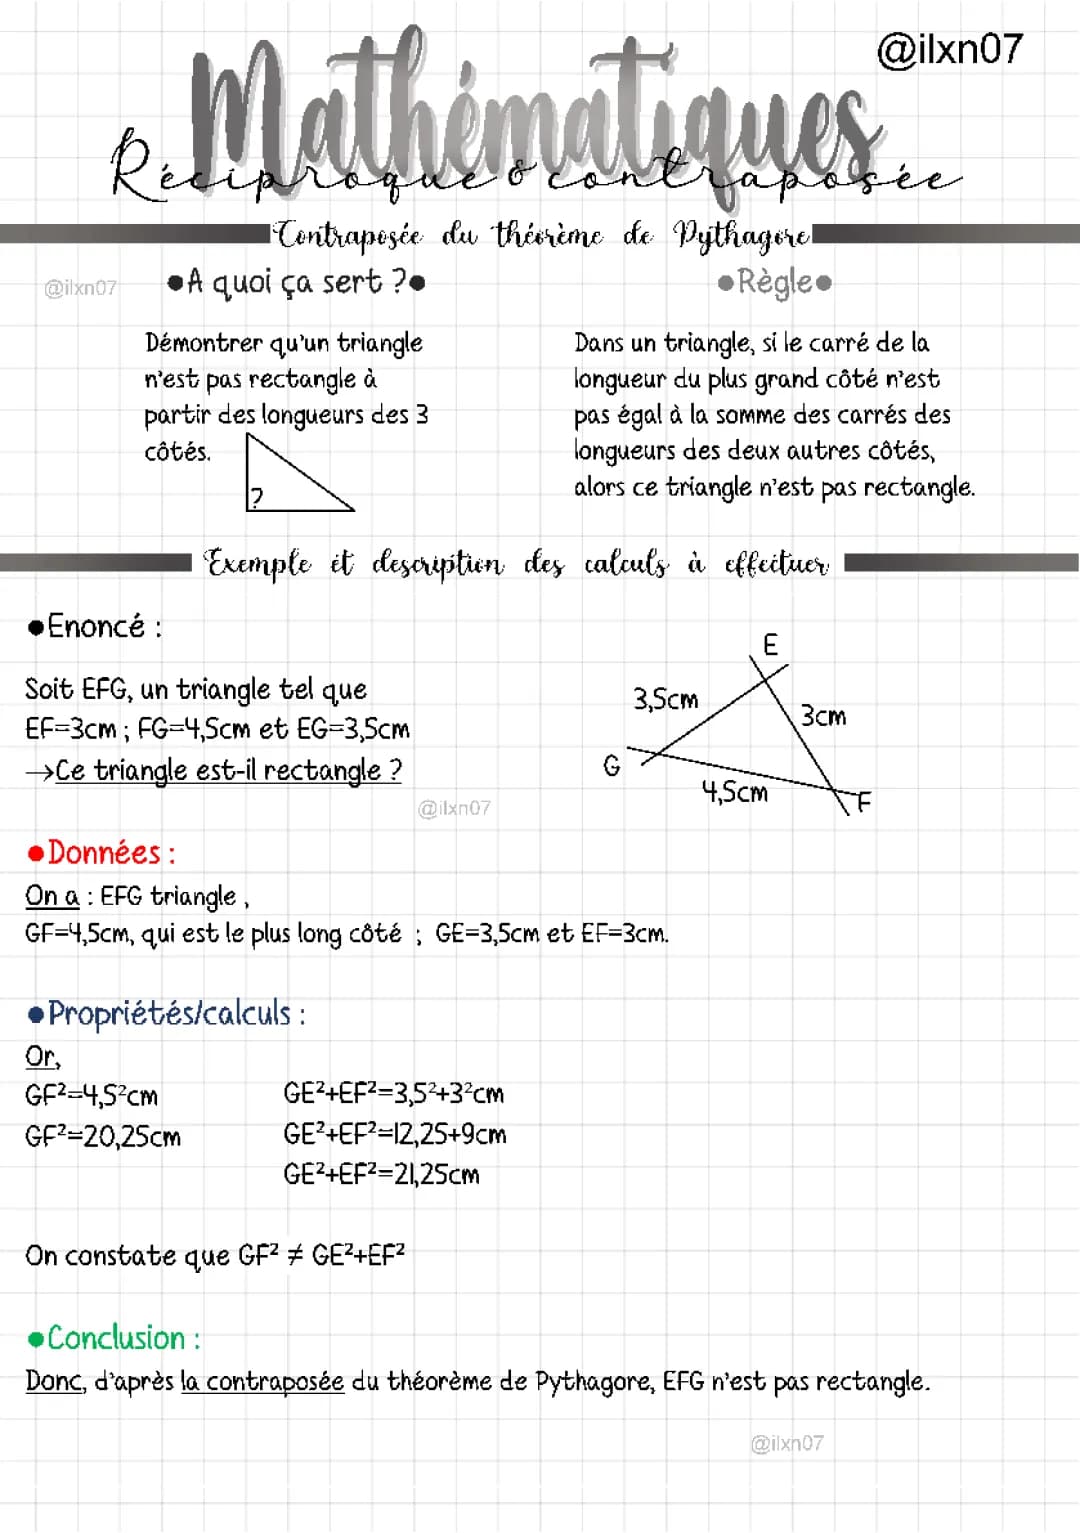 @ilxn07
Mathématiques
Réciproque & contraposée
Contraposée du théorème de Pythagore
@ilxn07
•A quoi ça sert ?•
Démontrer qu'un triangle
n'est pas rectangle à
partir des longueurs des 3
côtés.
?
•Règle•
Dans un triangle, si le carré de la
longueur du plus grand côté n'est
pas égal à la somme des carrés des
longueurs des deux autres côtés,
alors ce triangle n'est pas rectangle.
Exemple et description des calculs à effectuer
•Enoncé :
Soit EFG, un triangle tel que
EF=3cm ; FG=4,5cm et EG=3,5cm
→Ce triangle est-il rectangle ?
E
3,5cm
3cm
G
4,5cm
F
@ilxn07
•Données :
On a : EFG triangle ,
GF=4,5cm, qui est le plus long côté ; GE=3,5cm et EF=3cm.
•Propriétés/calculs :
Or,
GF²=4,5²cm
GF²=20,25cm
GE²+EF²=3,5²+3²cm
GE²+EF²=12,25+9cm
GE²+EF²=21,25cm
On constate que GF² ≠ GE²+EF²
•Conclusion :
Donc, d'après la contraposée du théorème de Pythagore, EFG n'est pas rectangle.
@ilxn07